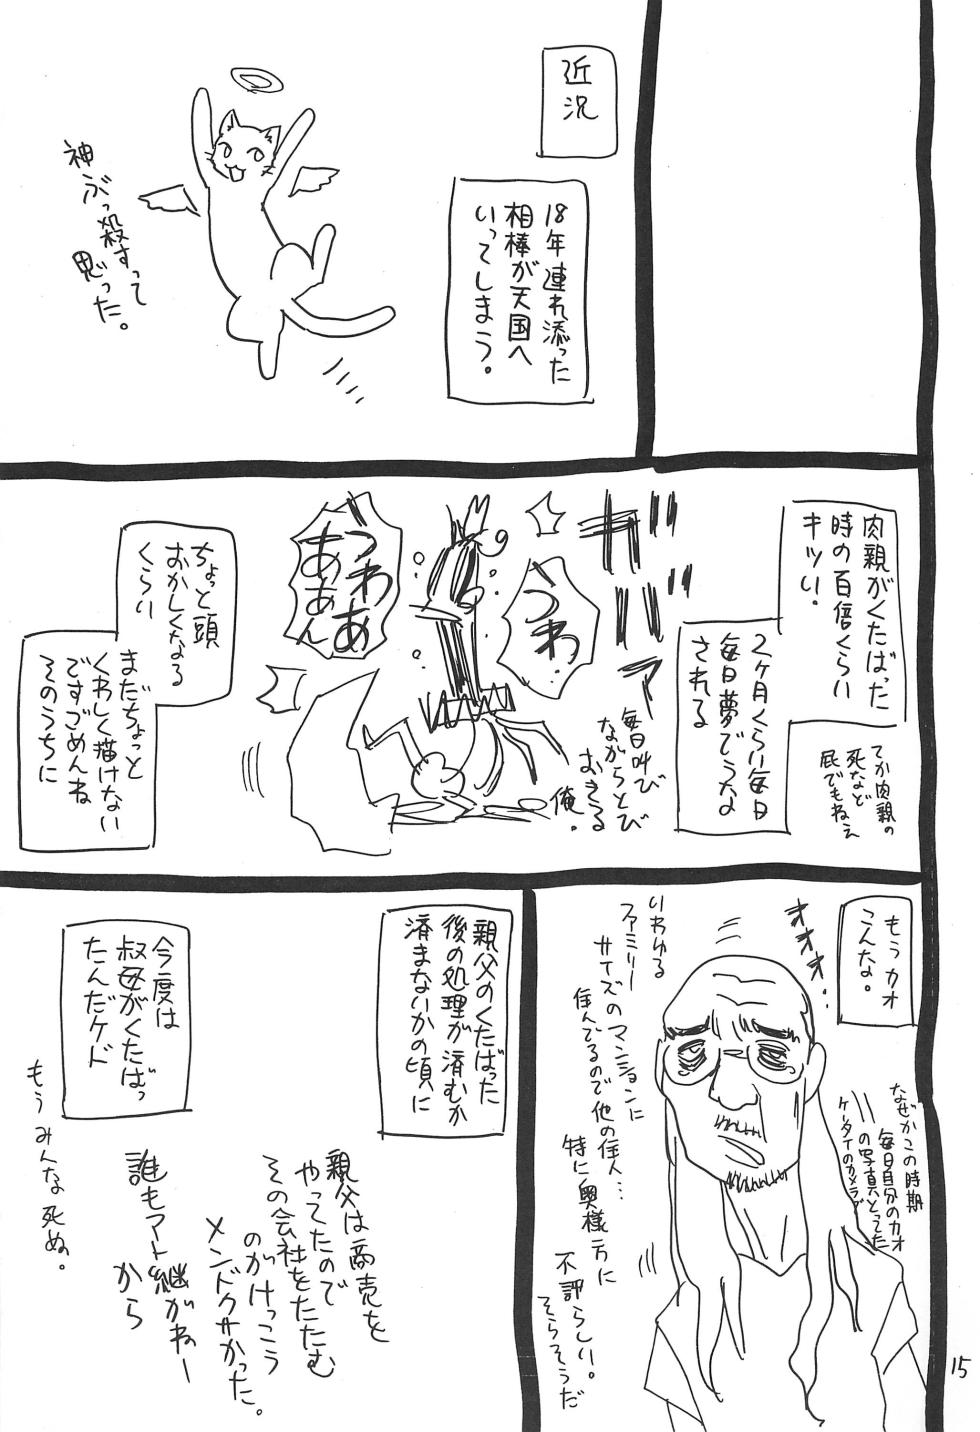 近況
18年連れ添った
相棒が天国へ
いってしまう。
神ぶっ殺すって
思った。
肉親がくたばった
時の百倍くらい
キツい.
てか肉親の
死など
屁でもねえ
2ヶ月くらい毎日
毎日夢でうな
される
ギ゛ャー
うわ
うわあ
あぁん
毎日叫び
ながらとび
おきる
俺.
ちょっと頭
おかしくなる
くらい
まだちょっと
くわしく描けない
ですごめんね
そのうちに
もうカオ
こんなよ。
オオオオ…
なぜかこの時期
毎日自分のカオ
の写真とってた
ケータイのカメラで
いわゆる
ファミリー
サイズのマンションに
住んでるので他の住人…
特に奥様方に
不評らしい。
そらそうだ
親父のくたばった
後の処理が済むか
済まないかの頃に
親父は商売を
やってたので
その会社をたたむ
のがけっこう
メンドクサかった。
誰もアト継がねー
から
今度は
叔母がくたばっ
たんだケド
もうみんな死ぬ。
15